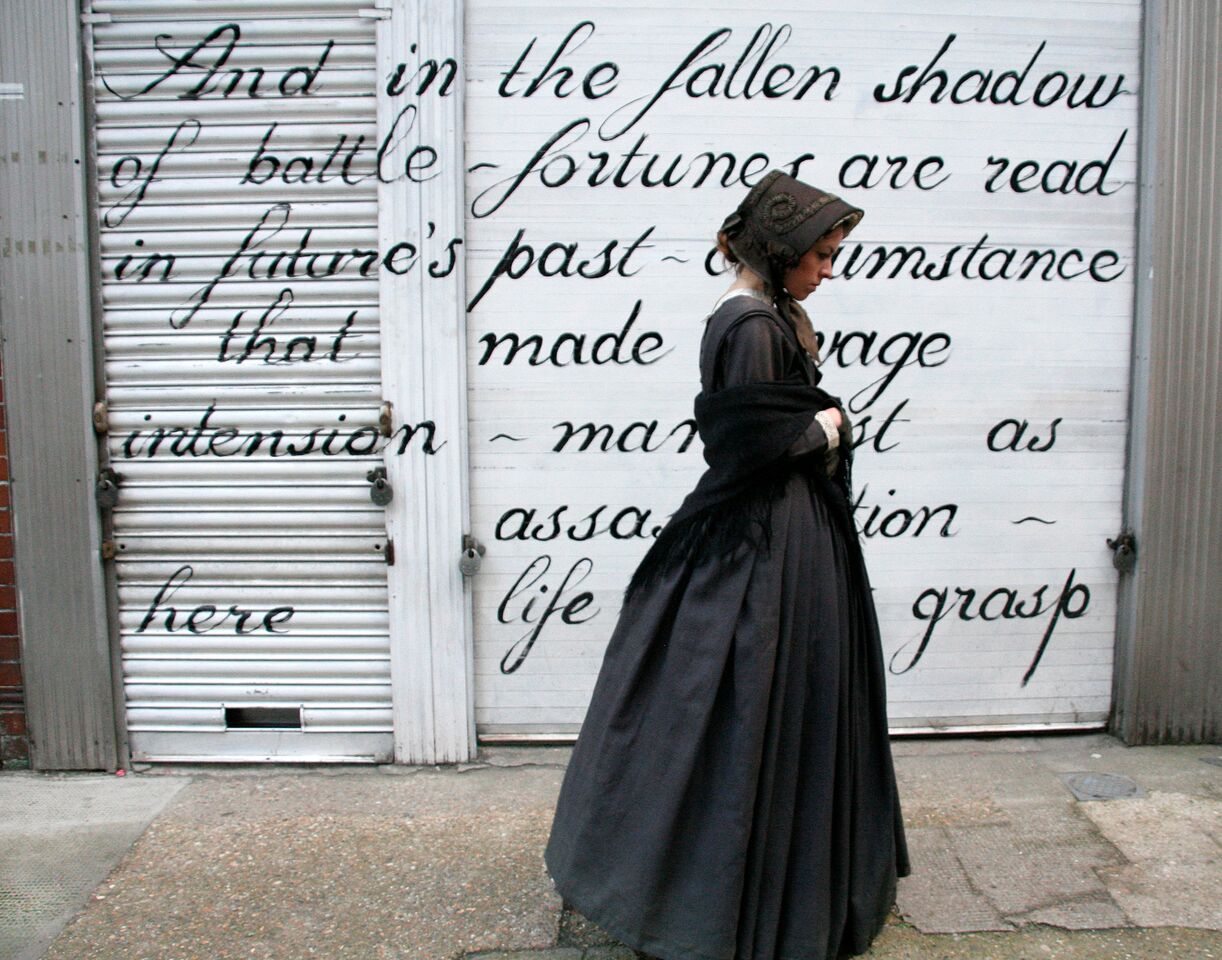 And in the fallen shadow
of battle ~ fortunes are read
in future's past ~ c umstance
that made vage
intension ~ man st as
assas tion ~
here life grasp